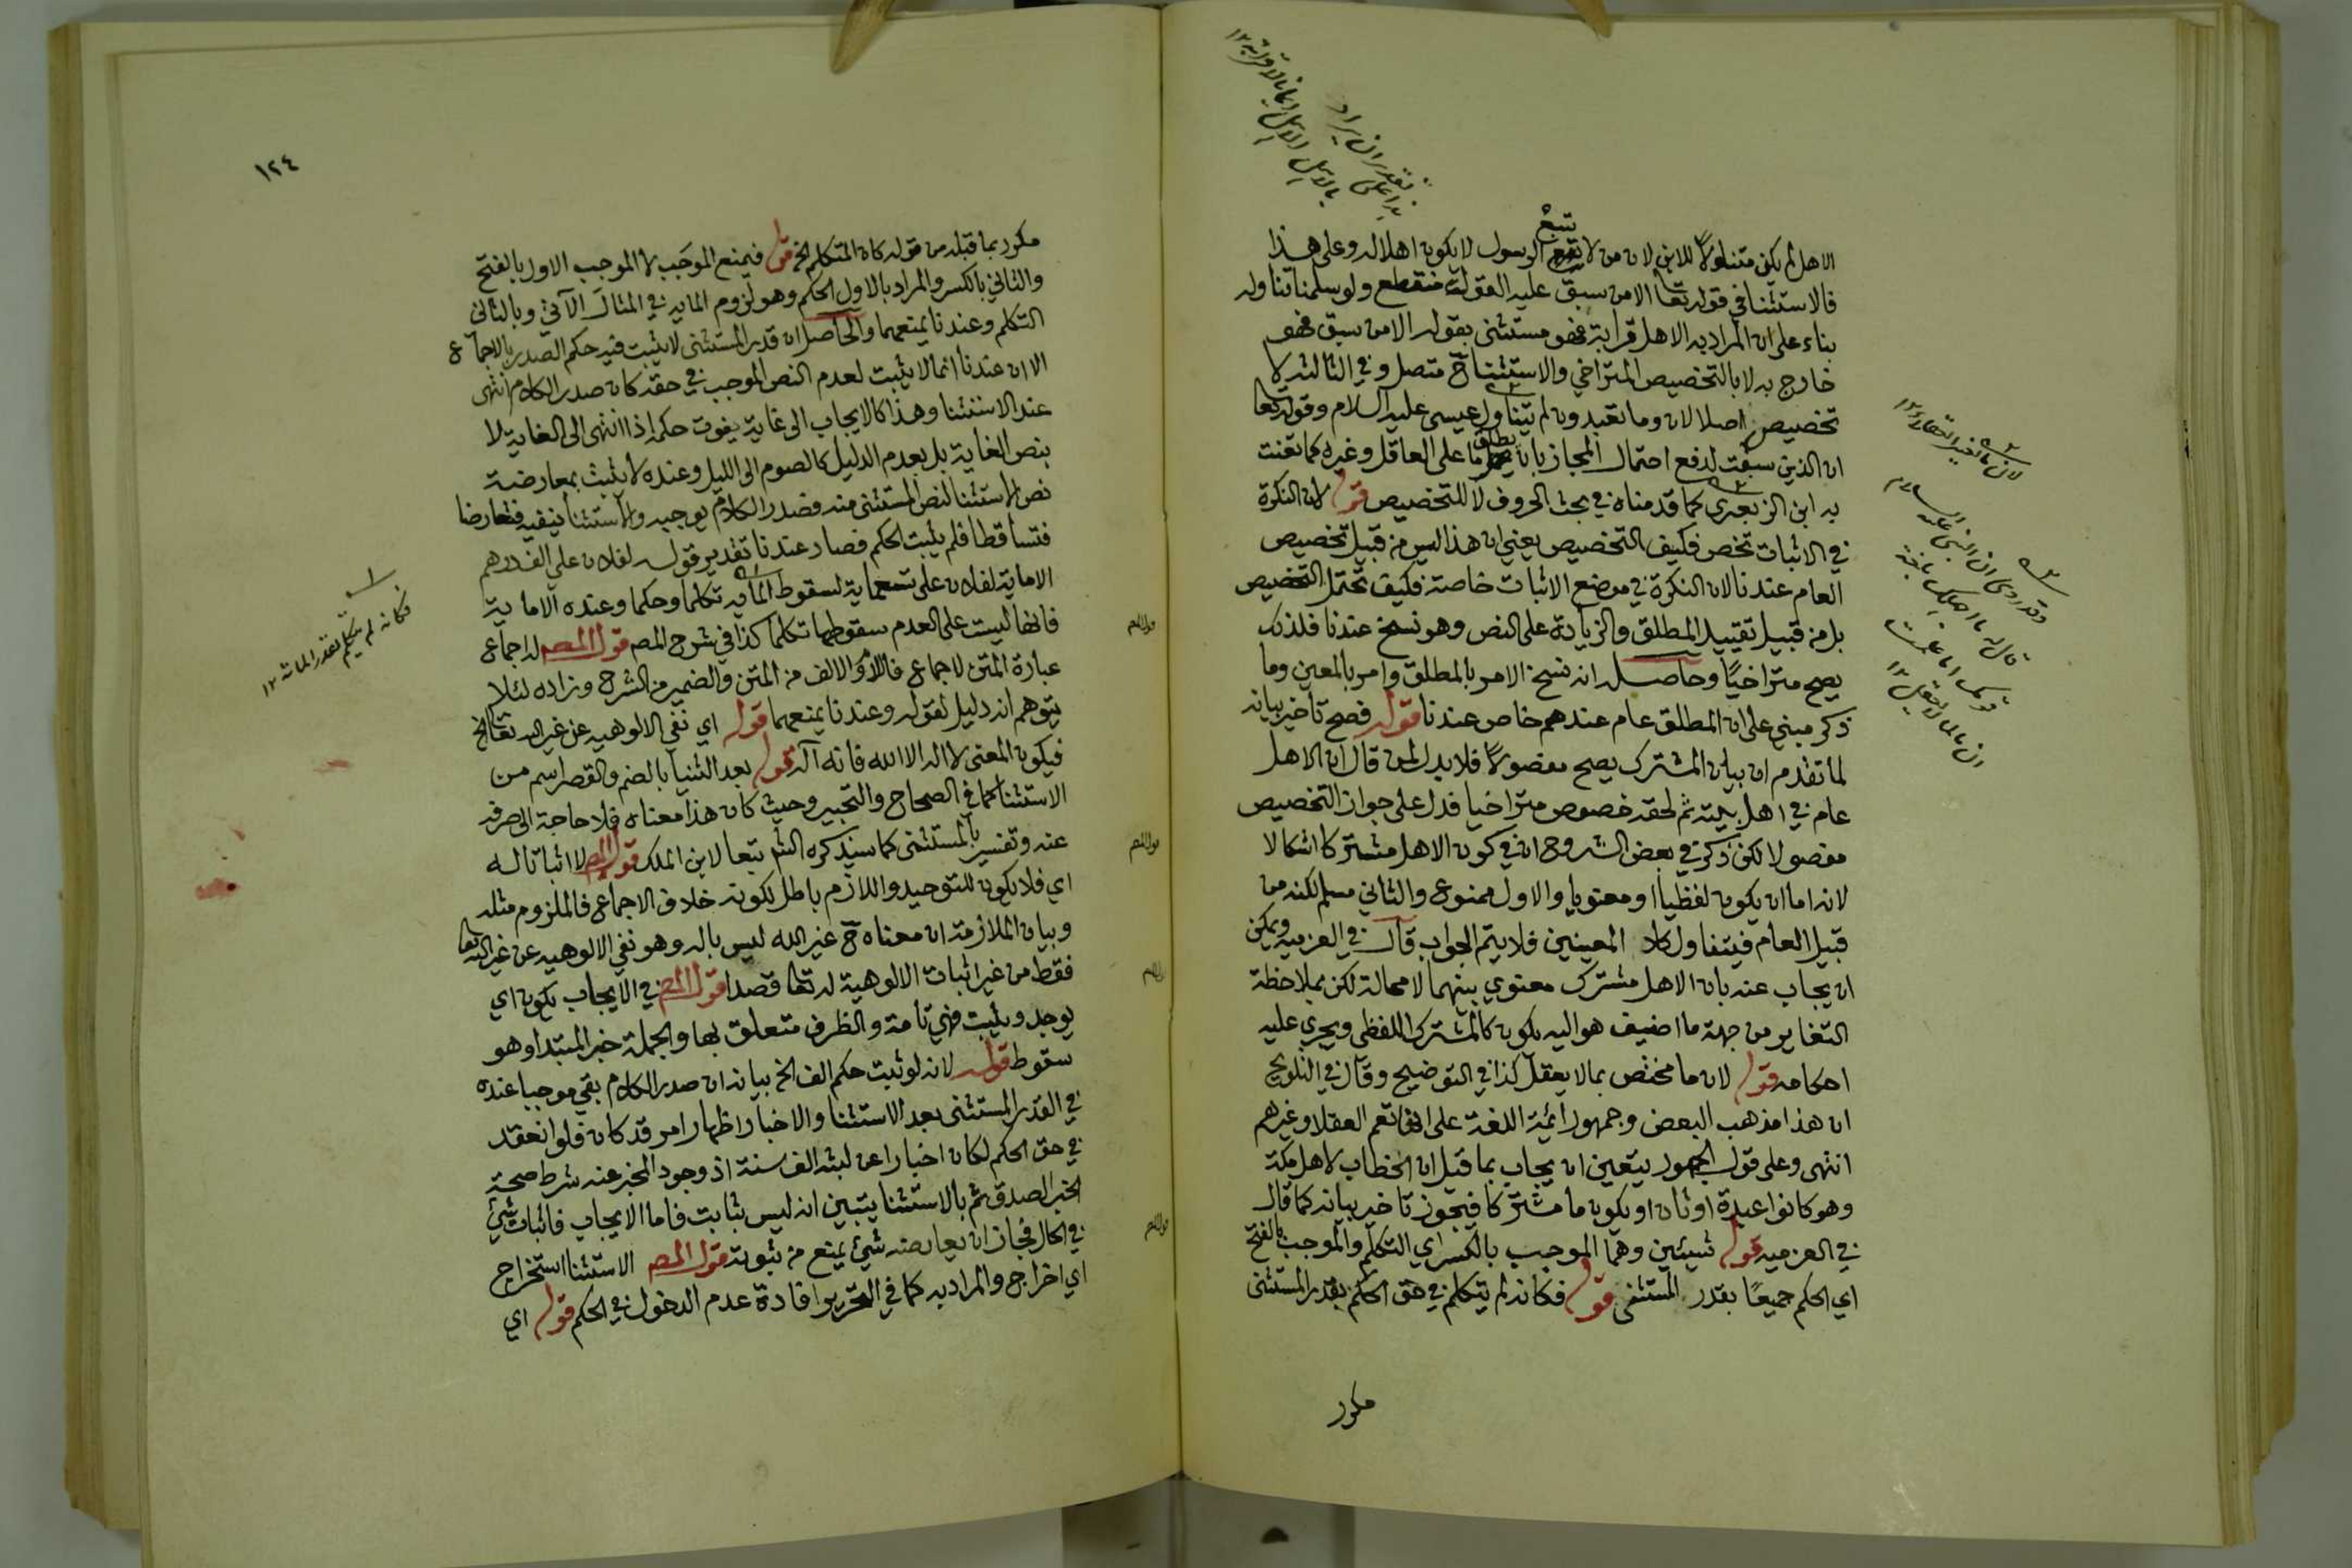 الاهل لم يكن متناولا للابن لان من لا يتبع الرسول لا يكون اهلا له وعلى هذا
فالاستثنا في قوله تعا الا من سبق عليه القول منقطع ولو سلمنا تناوله
بناء على ان المراد به الاهل قرابة فهو مستثنى بقوله الا من سبق فهو
خارج به لا بالتخصيص المتراخي والاستثنا ح متصل وفي الثالثه لا
تخصيص اصلا لان وما تعبدون لم يتناول عيسى عليه السلام وقوله تعا
ان الذين سبقت لدفع احتمال المجاز بان يطلق ما على العاقل وغيره كما تعنت
به ابن الزبعرى كما قدمناه في بحث الحروف لا للتخصيص قوله لان النكرة
في الاثبات تخص فكيف التخصيص يعني ان هذا ليس من قبيل تخصيص
العام عندنا لان النكرة في موضع الاثبات خاصة فكيف تحتمل التخصيص
بل من قبيل تقييد المطلق والزيادة على النص وهو نسخ عندنا فلذلك
يصح متراخيا وحاصله انه نسخ الامر بالمطلق وامر بالمعين وما
ذكر مبني على ان المطلق عام عندهم خاص عندنا قوله فصح تأخير بيانه
لما تقدم ان بيان المشترك يصح مفصولا فلا يدل لمن قال ان الاهل
عام في اهل بيته ثم لحقه خصوص متراخيا فدل على جواز التخصيص
مفصولا لكن ذكر في بعض الشروح ان في كون الاهل مشتركا اشكالا
لانه اما ان يكون لفظيا او معنويا والاول ممنوع والثاني مسلم لكنه من
قبيل العام فيتناول كلا المعينين فلا يتم الجواب قال في العزميه ويمكن
ان يجاب عنه بان الاهل مشترك معنوي بينهما لا محالة لكن بملاحظة
التغاير من جهة ما اضيف هو اليه يكون كالمشترك اللفظي ويجري عليه
احكامه قوله لان ما مختص بما لا يعقل كذا في التوضيح وقال في التلويح
ان هذا مذهب البعض وجمهور ائمة اللغة على انها تعم العقلا وغيرهم
انتهى وعلى قول الجمهور يتعين ان يجاب بما قيل ان الخطاب لاهل مكة
وهو كانوا عبدة اوثان او يكون ما مشتركا فيجوز تاخير بيانه كما قال
في العزميه قوله شيئين وهما الموجب بالكسر اي التكلم والموجب بالفتح
اي الحكم جميعا بقدر المستثنى قوله فكانه لم يتكلم في حق الحكم بقدر المستثنى
مكرر
١٢٤
مكرر بما قبله من قوله كان المتكلم الخ قوله فيمنع الموجَب لا الموجِب الاول بالفتح
والثاني بالكسر والمراد بالاول الحكم وهو لزوم المايه في المثال الآتي وبالثاني
التكلم وعندنا يمنعهما والحاصل ان قدر المستثنى لا يثبت فيه حكم الصدر بالاجماع
الا ان عندنا انما لا يثبت لعدم النص الموجب في حقه كان صدر الكلام انتهى
عند الاستثنا وهذا كالايجاب الى غاية يفوت حكمه اذا انتهى الى الغاية لا
بنص الغاية بل بعدم الدليل كالصوم الى الليل وعنده لا يثبت بمعارضة
نص الاستثنا لنص المستثنى منه فصدر الكلام يوجبه والاستثنا ينفيه فتعارضا
فتساقطا فلم يثبت الحكم فصار عندنا تقدير قوله لفلان علي الف درهم
الا مايه لفلان علي تسعماية لسقوط المايه تكلما وحكما وعنده الا ماية
فانها ليست على العدم سقوطها تكلما كذا في شرح المص قول المص لاجماع
عبارة المتن لاجماع فاللام والالف من المتن والضمير من الشرح وزاده لئلا
يتوهم انه دليل لقوله وعندنا يمنعهما قوله اي نفي الالوهيه عن غير الله تعا الخ
فيكون المعنى لا اله الا الله فانه اله قوله بعد الثنيا بالضم والقصر اسم من
الاستثنا كما في الصحاح والتحبير وحيث كان هذا معناه فلا حاجة الى صرفه
عنه وتفسير بالمستثنى كما سيذكره الش تبعا لابن الملك قول المص لا اثباتا له
اي فلا يكون للتوحيد واللازم باطل لكونه خلاف الاجماع فالملزوم مثله
وبيان الملازمة ان معناه ح غير الله ليس باله وهو نفي الالوهيه عن غير الله تعا
فقط من غير اثبات الالوهية له تعا قصدا قول المص في الايجاب يكون اي
يوجد ويثبت فهي تامة والظرف متعلق بها والجملة خبر المبتدا وهو
سقوط قوله لانه لو ثبت حكم الف الخ بيانه ان صدر الكلام بقي موجبا عنده
في القدر المستثنى بعد الاستثنا والاخبار اظهار امر قد كان فلو انعقد
في حق الحكم لكان اخبارا عن لبثه الف سنة اذ وجود المخبر عنه شرط صحة
الخبر الصدق ثم بالاستثنا يتبين انه ليس بثابت فاما الايجاب فاثبات شيئ
في الحال فجاز ان يعارضه شيئ يمنع من ثبوته قول المص الاستثنا استخراج
اي اخراج والمراد به كما في التحرير افادة عدم الدخول في الحكم قوله اي
فكانه لم يتكلم بقدر المائة ١٢